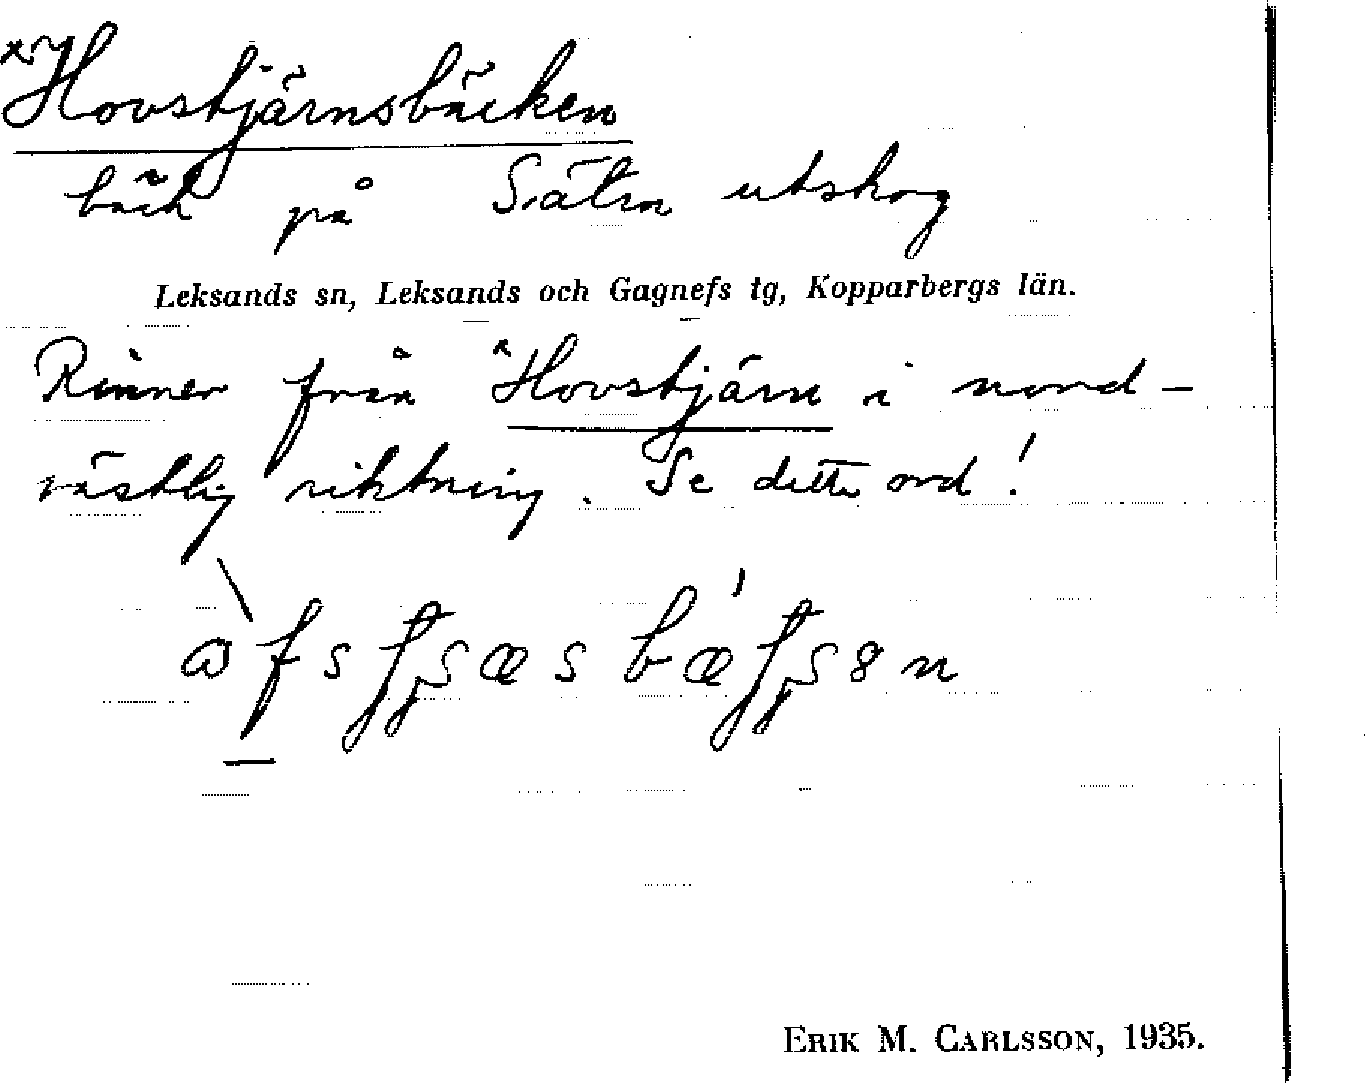 *Hovstjärnsbäcken
bäck på Sätra utskog
Leksands sn, Leksands och Gagnefs tg, Kopparbergs län.
Rinner från *Hovstjärn i nord-
västlig riktning. Se detta ord!
ERIK M. CARLSSON, 1935.